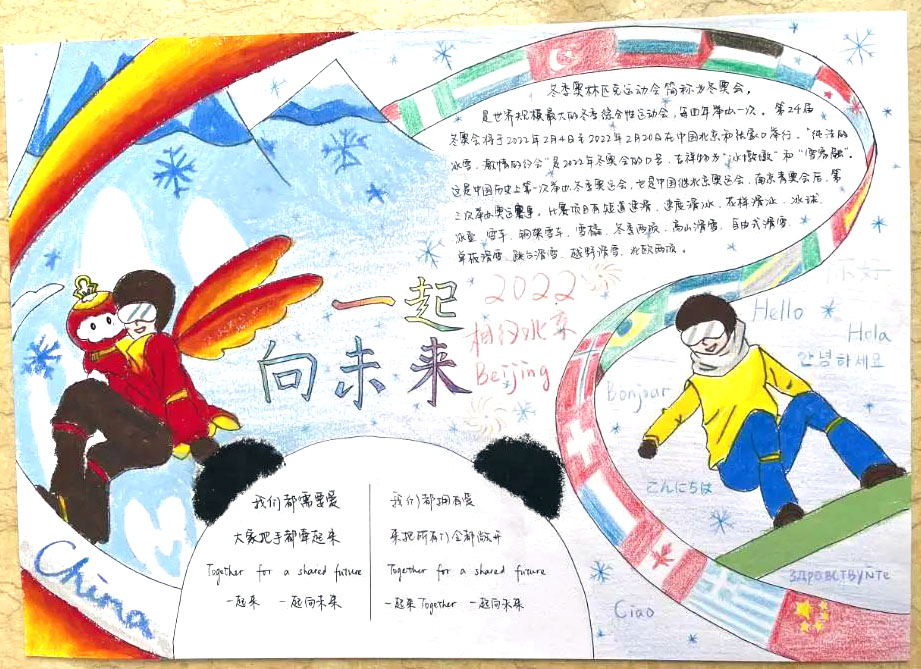 冬季奥林匹克运动会简称为冬奥会,
是世界规模最大的冬季综合性运动会,每四年举办一次。第24届
冬奥会将于2022年2月4日至2022年2月20日在中国北京和张家口举行。"纯洁的
冰雪,激情的约会"是2022年冬奥会的口号,吉祥物为"冰墩墩"和"雪容融"。
这是中国历史上第一次举办冬季奥运会,也是中国继北京奥运会,南京青奥会后,第
三次举办奥运赛事。比赛项目有短道速滑、速度滑冰、花样滑冰、冰球、
冰壶、雪车、钢架雪车、雪橇、冬季两项、高山滑雪、自由式滑雪、
单板滑雪、跳台滑雪、越野滑雪、北欧两项。
一起
向未来
2022
相约北京
Beijing
你好
Hello
Hola
안녕하세요
Bonjour
こんにちは
Здравствуйте
Ciao
China
我们都需要爱
大家把手都牵起来
Together for a shared future
一起来 一起向未来
我们都拥有爱
来把所有门全都敞开
Together for a shared future
一起来Together 一起向未来